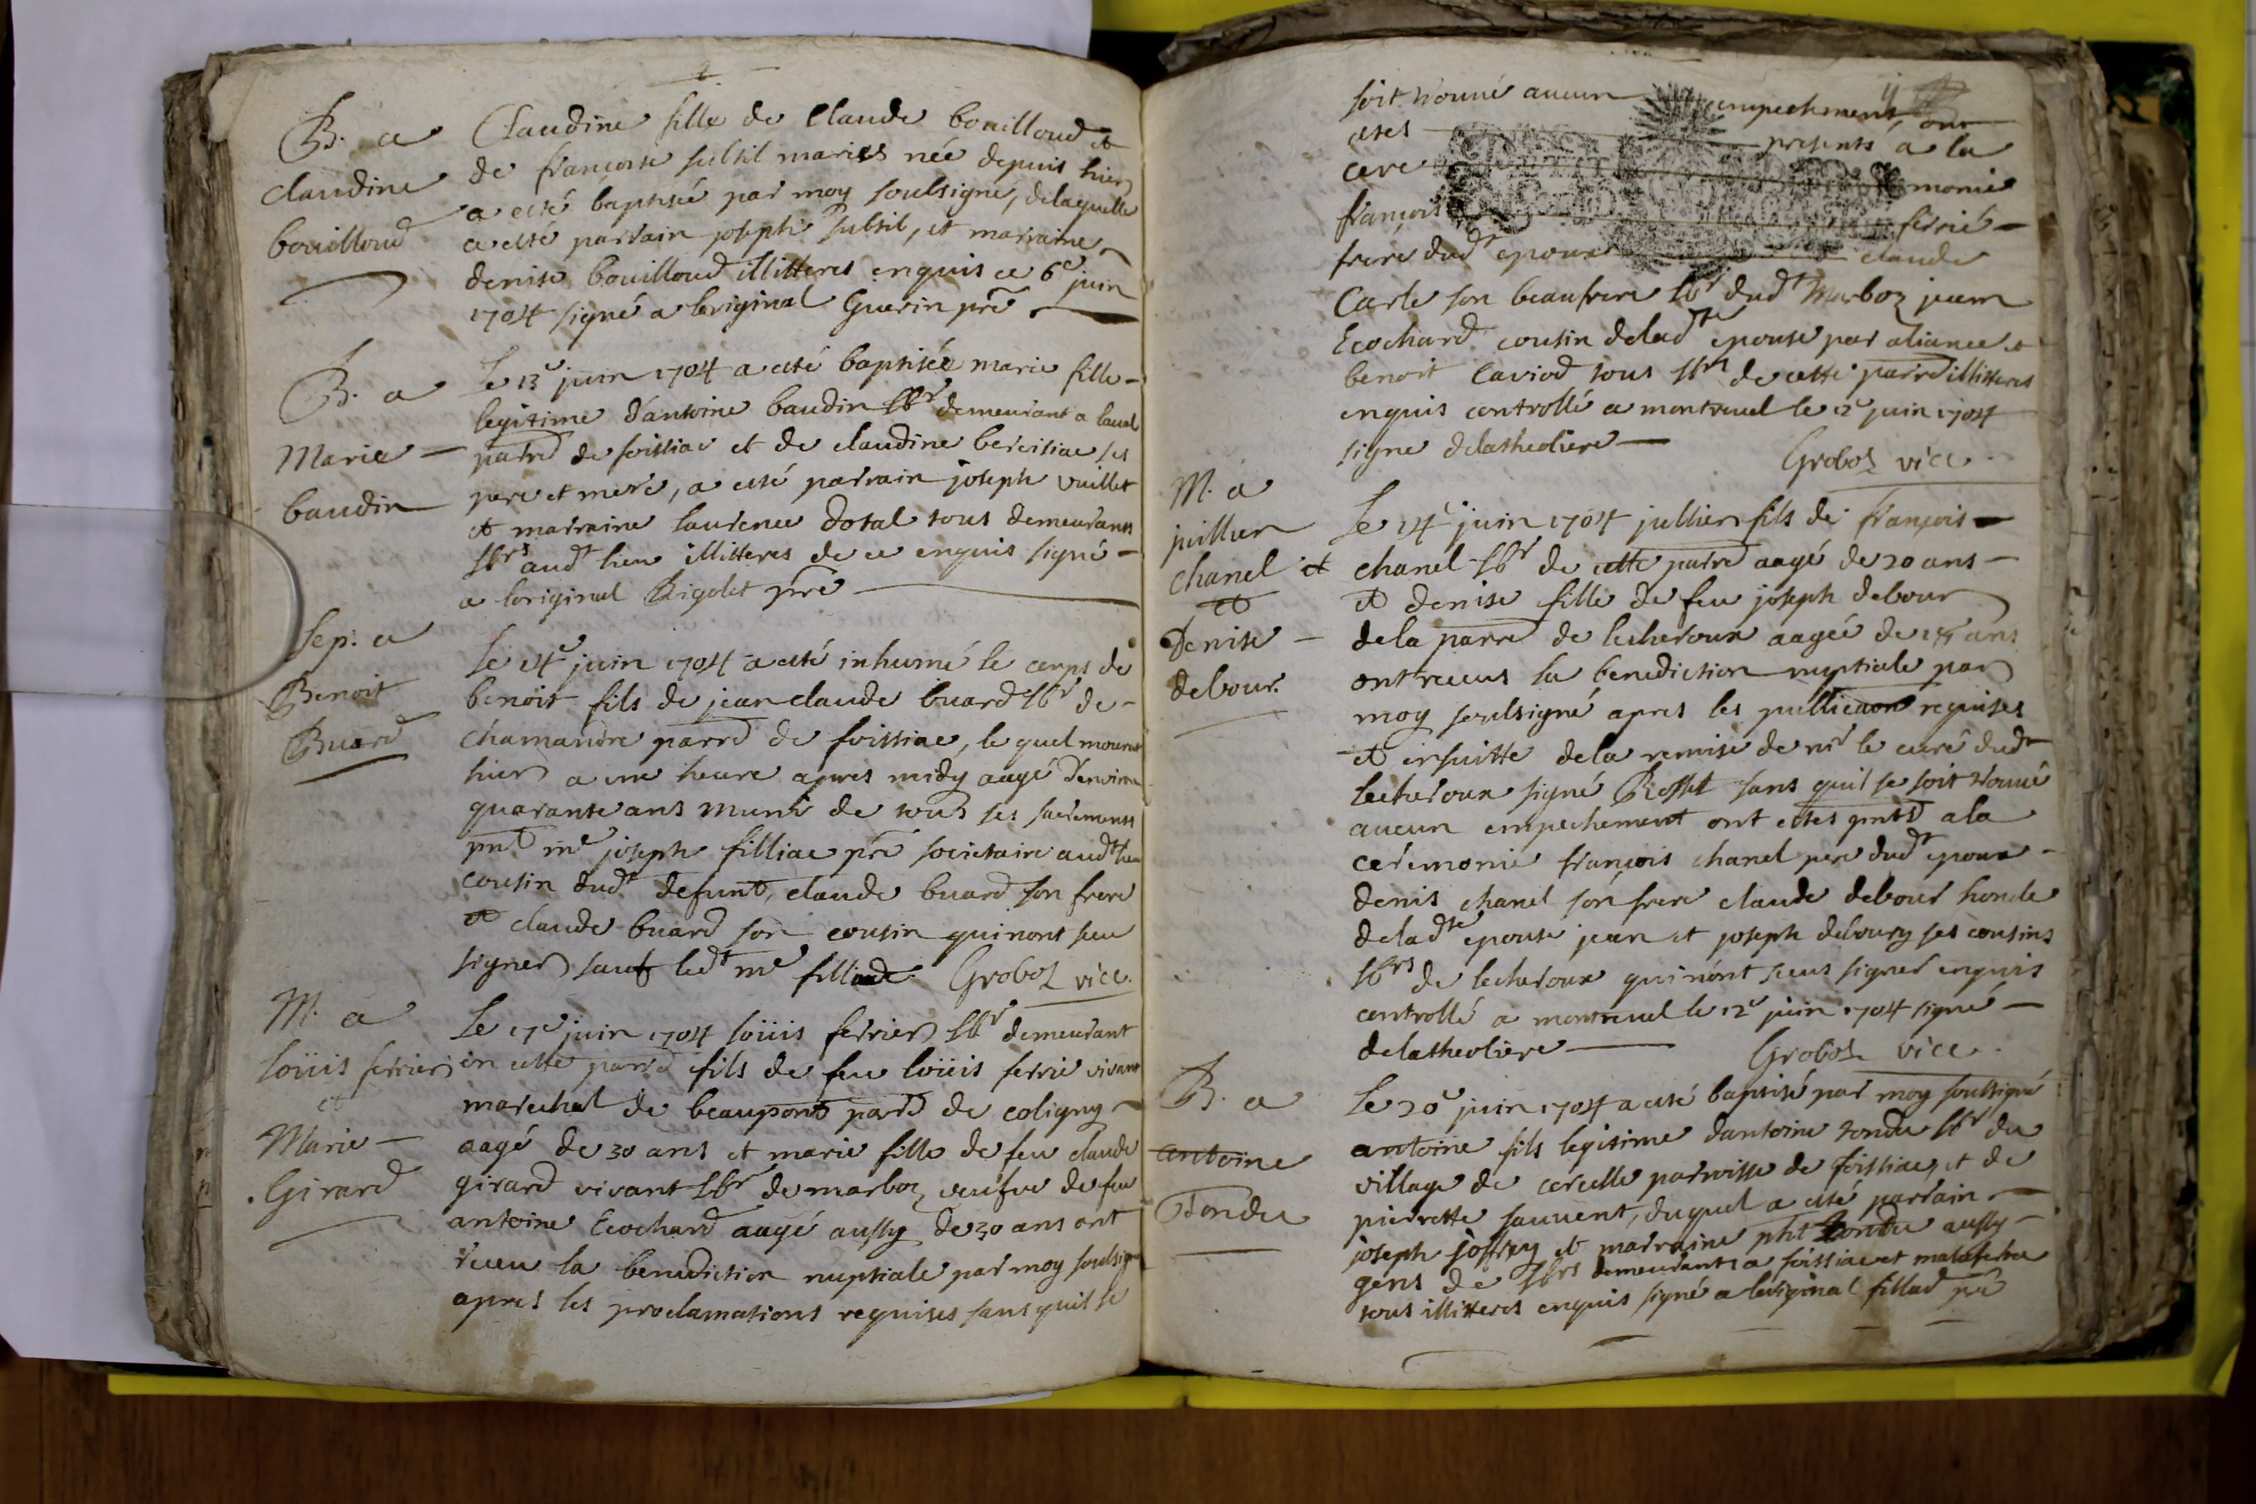 B. a
claudine
bouilloud
Claudine fille de Claude bouilloud et
de françoise subtil mariés née depuis hier
a esté baptisée par moy soubsigné, delaquelle
a esté parrain joseph subtil, et marraine
denise bouilloud illitteres enquis ce 6e juin
1704 signé a loriginal Guerin pre
B. a
Marie
baudin
Le 13e juin 1704 a esté baptisée marie fille
legitime d'antoine baudin lbr demeurant a laual
parre de foissiac et de claudine bereitiac ses
pere et mere, a esté parrain joseph vuillet
et marraine laurence dotal tous demeurants
lbrs audt lieu illitteres de ce enquis signé
a loriginal Rigolet pre
Sep. a
Benoit
Buard
Le 14e juin 1704 a esté inhumé le corps de
benoit fils de jean claude buard lbr de
chamandre parre de foissiac, le quel mourut
hier a une heure apres midy aagé denviron
quarante ans muni de tous ses sacrements
pnt me joseph filliac pre societaire audt lieu
cousin dudt defunt, claude buard son frere
et claude buard son cousin qui nont sceu
signer sauf ledt me filliade Groboz vice.
M. a
loüis ferrier
et
Marie
Girard
Le 17e juin 1704 loüis ferrier lbr demeurant
en cette parre fils de feu loüis ferrié vivant
marechal de beaupont parre de coligny
aagé de 30 ans et marie fille de feu claude
girard vivant lbr de marboz, veufve de feu
antoine Ecochard aagé aussy de 30 ans ont
receu la benediction nuptiale par moy soubsigné
apres les proclamations requises sans quil se
ij
soit trouué aucun empechement, ont
estes presents a la
cere monie
françois ferrié
frere dudt epoux claude
Carle son beaufrere lbr dudt Marboz jean
Ecochard cousin deladte epouse par aliance et
benoit Caviod tous lbrs de cette parre illitteres
enquis controllé a montreuel le 12e juin 1704
signe delatheoliere Groboz vice.
M. a
juillien
chanel et
et
Denise
debour.
Le 14e juin 1704 jullien fils de françois
chanel lbr de cette parre aagé de 20 ans
et denise fille de feu joseph debour
dela parre de lescheroux aagée de ans
ont receus la benediction nuptiale par
moy soubsigné apres les publicaon requises
et ensuitte dela remise de mr le curé dudt
lecheroux signé Rosset sans quil se soit trouué
aucun empechement ont estes pnts a la
ceremonie françois chanel pere dudt epoux
denis chanel son frere claude debour honcle
deladte epouse jean et joseph deboury ses cousins
lbrs de lecheroux qui nont sceus signer enquis
controllé a montreuel le 12e juin 1704 signé
delatheoliere Groboz vice.
B. a
antoine
Tondu
Le 20e juin 1704 a esté baptisé par moy soussigné
antoine fils legitime dantoine tondu lbr du
village de cercelle parroisse de foissiac, et de
pierrette sauvent, duquel a esté parrain
joseph joffrey et marraine pht tondu aussy
gens de lbrs demeurants a foissiac et malafretaz
tous illitteres enquis signé a loriginal filliad pre